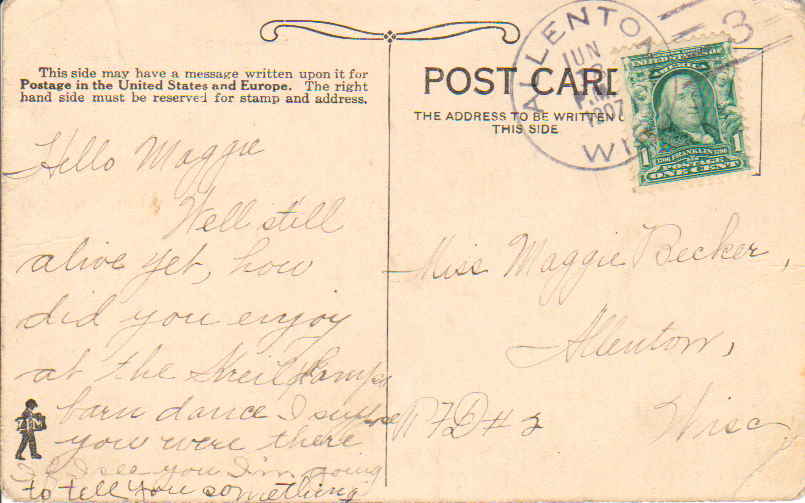 This side may have a message written upon it for
Postage in the United States and Europe. The right
hand side must be reserved for stamp and address.
Hello Maggie
Well still
alive yet, how
did you enjoy
at the Kreil Kamps
barn dance I suppose
you were there
If I see you I'm going
to tell you something
POST CARD
THE ADDRESS TO BE WRITTEN
THIS SIDE
ALLENTON
JUN
P.M.
1907
WIS
3
UNITED STATES OF AMERICA
1 1706 FRANKLIN 1790 1
POSTAGE
ONE CENT
Miss Maggie Becker,
Allenton,
RFD # 2 Wisc